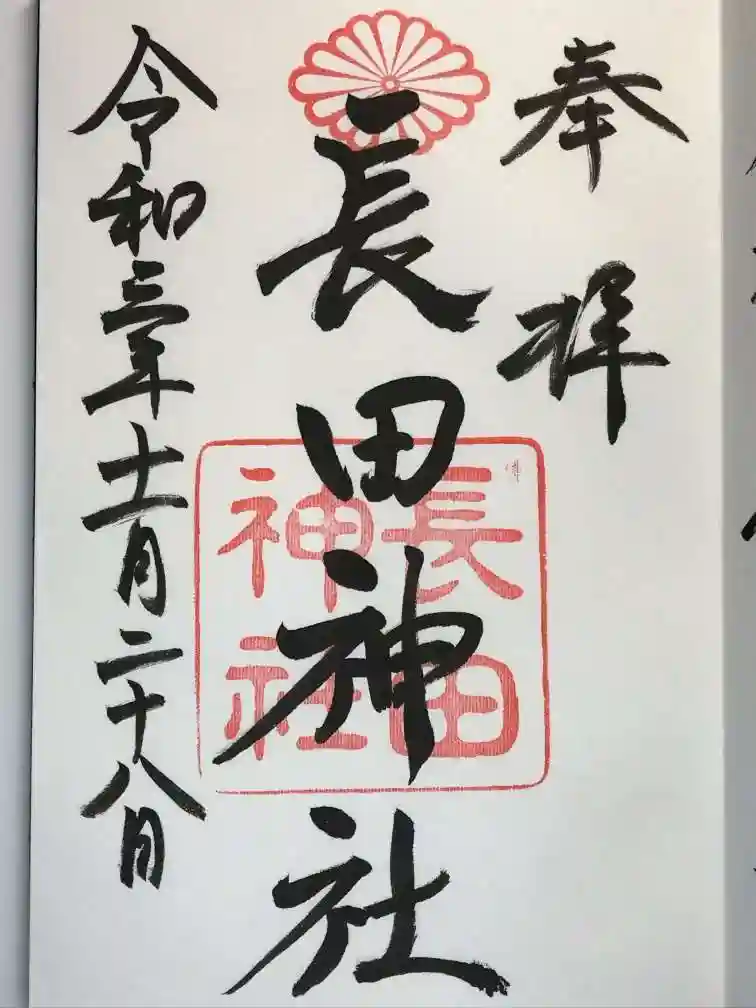 奉拝
長田神社
長田神社
令和三年十一月二十八日